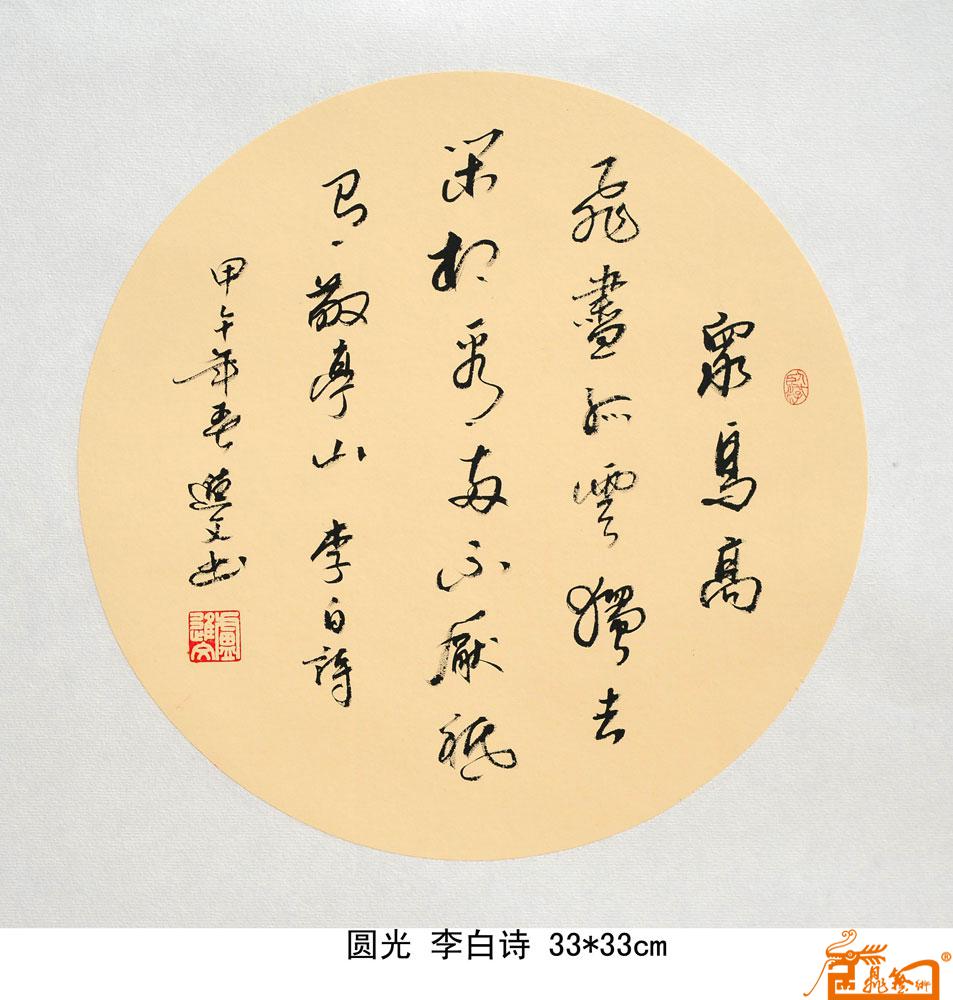 眾鳥高
飛盡孤雲獨去
閑相看兩不厭祇
有敬亭山 李白詩
甲午年春進文书
圆光 李白诗 33*33cm